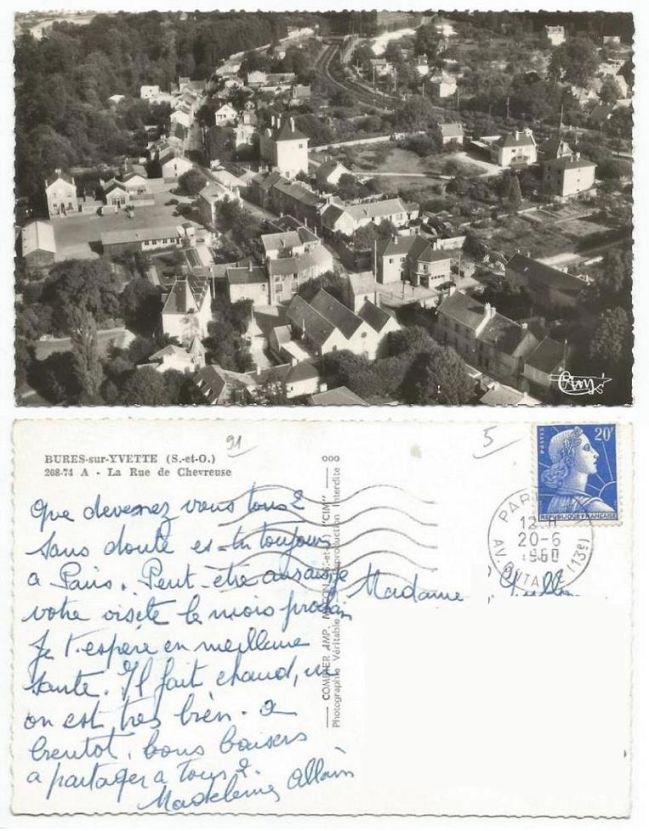 Cim
BURES-sur-YVETTE (S.-et-O.)
208-74 A - La Rue de Chevreuse
91
5
ooo
COMBIER IMP. MACON (S.-et-L.) "CIM"
Photographie Véritable - Reproduction Interdite
POSTES 20F
REPUBLIQUE FRANÇAISE
PARIS
12-H
20-6
1960
AV. D'ITALIE (13e)
Que devenez vous tous?
Sans doute es-tu toujours
a Paris. Peut-être aurai je
votre visite le mois prochain
Je t'espere en meilleure
santé. Il fait chaud,
on est très bien. a
bientot, bons baisers
a partager a tous 2.
Madeleine Allain
Madame